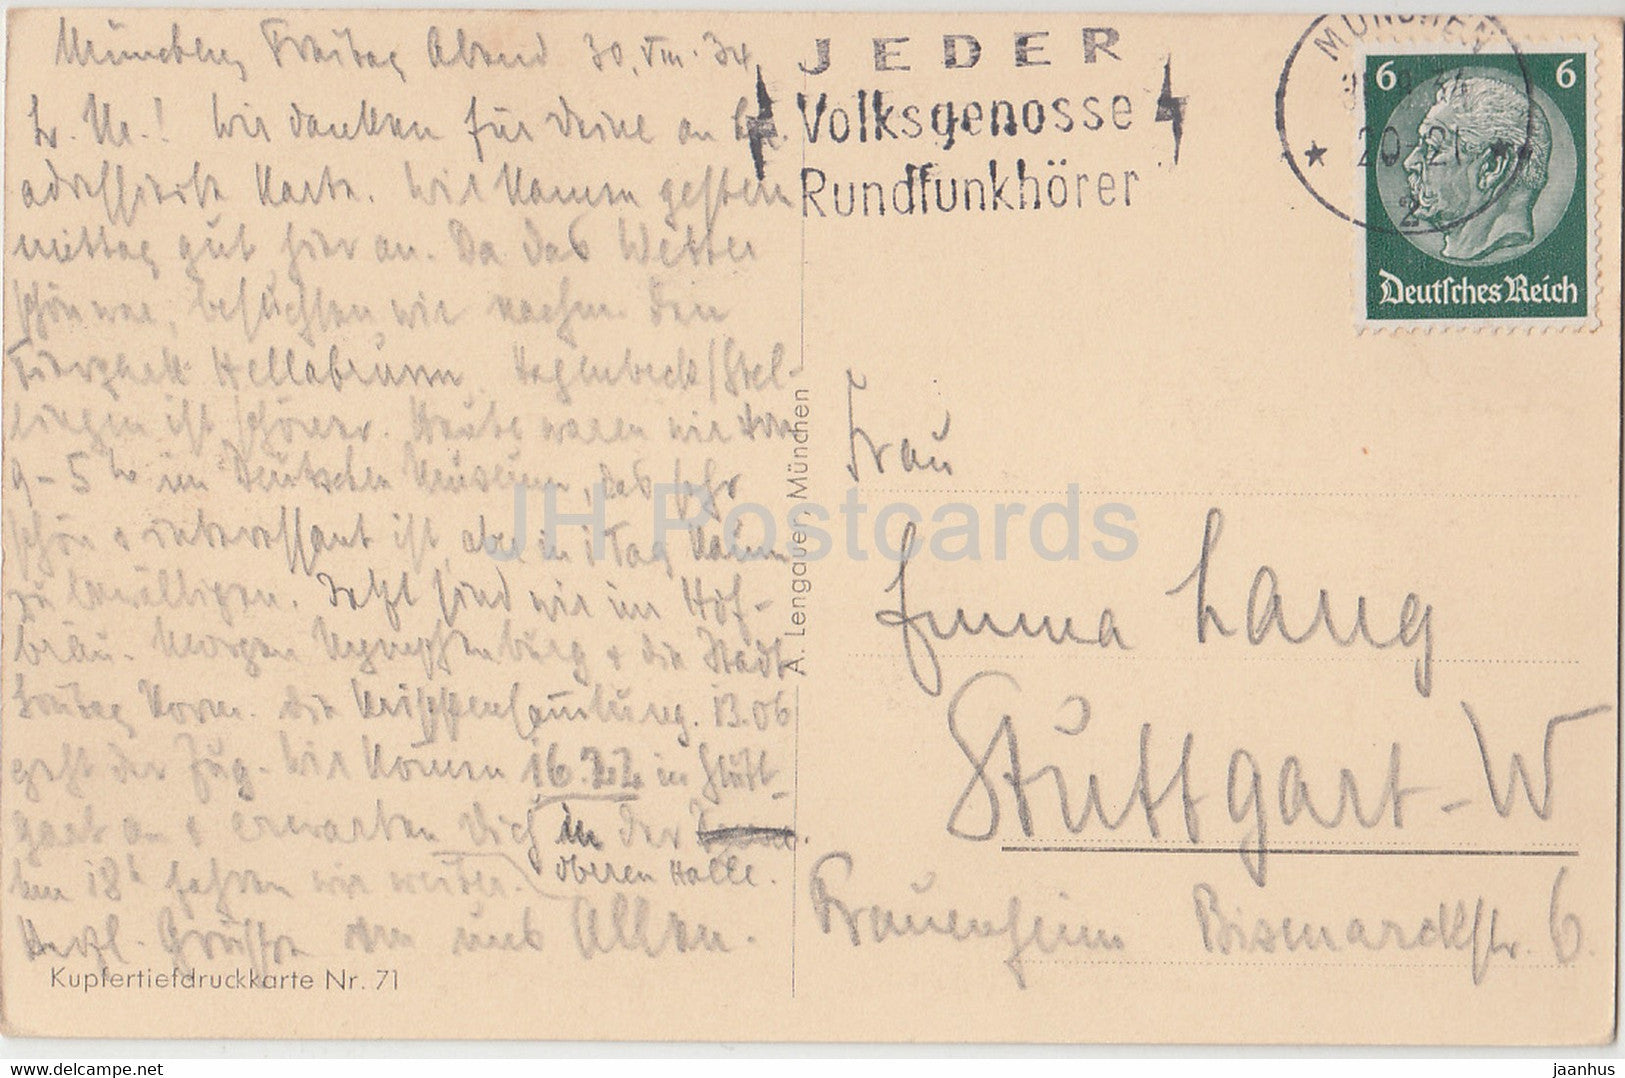 München, Freitag Abend 30. VIII. 34
L. Me.! Wir danken für Deine an
adressierte Karte. Wir kamen gestern
mittag gut hier an. Da das Wetter
schön war, besuchten wir nachm. den
Tierpark Hellabrunn. Hagenbeck/Stel-
lingen ist schöner. Heute waren wir von
9-5 h im Deutschen Museum, das sehr
schön & interessant ist, aber in 1 Tag kaum
zu bewältigen. Jetzt sind wir im Hof-
bräu. Morgen Nymphenburg & die Stadt
Sontag Vorm. die Krippensammlung. 13.06
geht der Zug. Wir kommen 16.22 in Stutt-
gart an & erwarten Dich in der
oberen Halle.
Um 18h fahren wir weiter.
Herzl. Grüsse von uns Allen.
Kupfertiefdruckkarte Nr. 71
A. Lengauer, München
JEDER
Volksgenosse
Rundfunkhörer
MÜNCHEN
34
20-21
2
6 6
Deutsches Reich
Frau
Emma Lang
Stuttgart-W
Frauenheim Bismarckstr. 6.
JH Postcards
jaanhus
www.delcampe.net